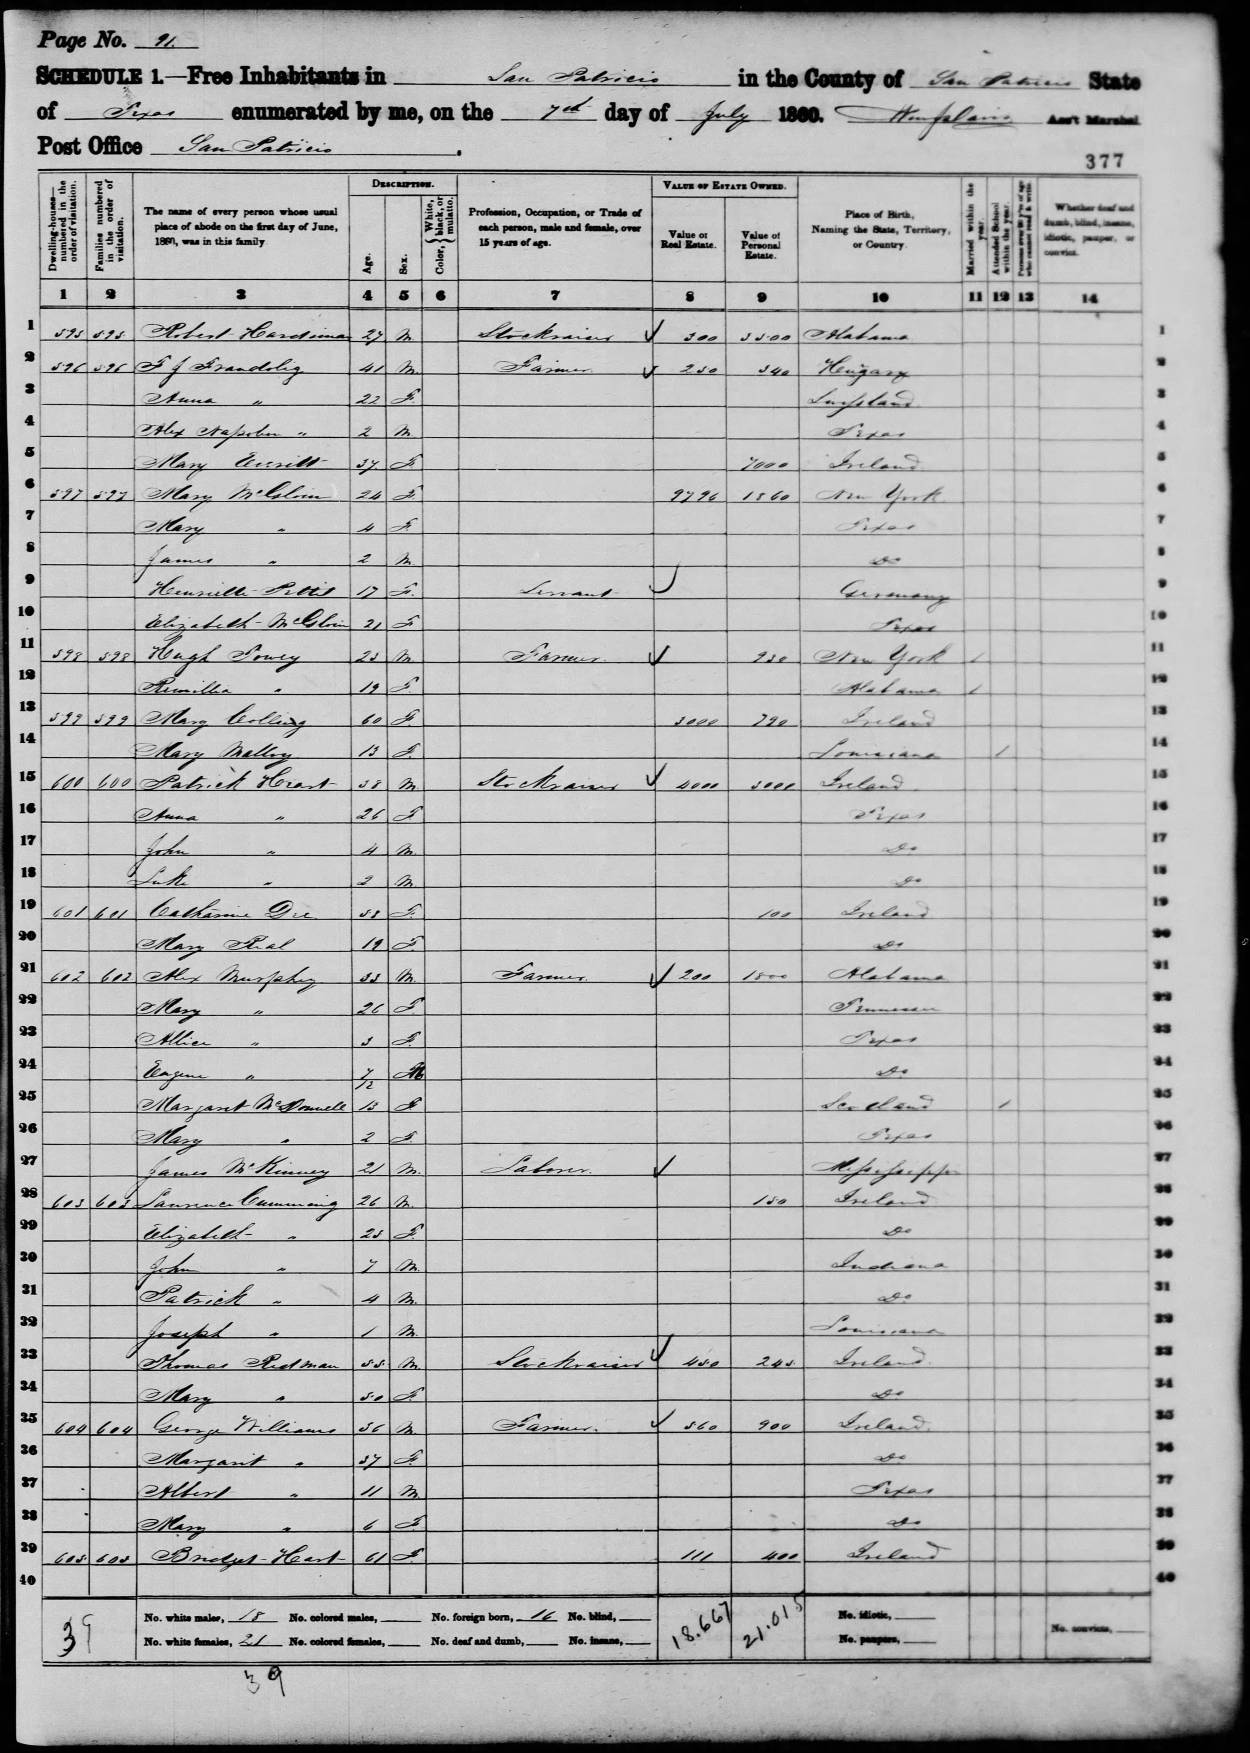 Page No. 91.
SCHEDULE 1.—Free Inhabitants in San Patricio in the County of San Patricio State
of Texas enumerated by me, on the 7th day of July 1860. Ass't Marshal
Post Office San Patricio.
377
Dwelling-houses—numbered in the order of visitation.
Families numbered in the order of visitation.
The name of every person whose usual place of abode on the first day of June, 1860, was in this family.
DESCRIPTION.
Age.
Sex.
Color, { White, black, or mulatto.
Profession, Occupation, or Trade of each person, male and female, over 15 years of age.
VALUE OF ESTATE OWNED.
Value of Real Estate.
Value of Personal Estate.
Place of Birth, Naming the State, Territory, or Country.
Married within the year.
Attended School within the year.
Persons over 20 y'rs of age who cannot read & write.
Whether deaf and dumb, blind, insane, idiotic, pauper, or convict.
1 2 3 4 5 6 7 8 9 10 11 12 13 14
1 595 595 Robert Hardiman 27 M. Stockraiser 300 3500 Alabama 1
2 596 596 F J Frandolig 41 M. Farmer 250 340 Hungary 2
3 Anna " 22 F. 3
4 Alex Napoleon " 2 M. Texas 4
5 Mary 37 F. 7000 Ireland 5
6 597 597 Mary McGloin 24 F. 9796 1860 New York 6
7 Mary " 4 F. Texas 7
8 James " 2 M. Do 8
9 17 F. Servant Germany 9
10 Elizabeth McGloin 21 F Texas 10
11 598 598 Hugh 23 M. Farmer. 950 New York 1 11
12 " 19 F. Alabama 1 12
13 599 599 Mary 60 F. 3000 790 Ireland 13
14 Mary Malloy 13 F. Louisiana 1 14
15 600 600 Patrick Heart 38 M. Stockraiser 4000 3000 Ireland 15
16 Anna " 26 F Texas 16
17 John " 4 M. Do 17
18 Luke " 2 M. Do 18
19 601 601 Catharine 58 F. 100 Ireland 19
20 Mary 19 F. Do 20
21 602 602 Alex Murphy 33 M. Farmer. 200 1800 Alabama 21
22 Mary " 26 F Tennessee 22
23 Allice " 3 F. Texas 23
24 Eugene " 7/12 M Do 24
25 Margaret McDonnell 13 F Scotland 1 25
26 Mary " 2 F. Texas 26
27 James McKinney 21 M. Laborer. Mississippi 27
28 603 603 Lawrence Cumming 26 M. 150 Ireland 28
29 Elizabeth " 25 F. Do 29
30 John " 7 M. Indiana 30
31 Patrick " 4 M. Do 31
32 Joseph " 1 M. Louisiana 32
33 Thomas Redman 55 M. Stockraiser 450 245 Ireland 33
34 Mary " 50 F. Do 34
35 604 604 George Williams 36 M. Farmer. 560 900 Ireland 35
36 Margarit " 37 F. Do 36
37 Albert " 11 M Texas 37
38 Mary " 6 F Do 38
39 605 605 Bridget Hart 61 F. 111 400 Ireland 39
40 40
39
No. white males, 18 No. colored males, No. foreign born, 16 No. blind,
No. white females, 21 No. colored females, No. deaf and dumb, No. insane,
18.667 21.015
No. idiotic,
No. paupers,
No. convicts,
39